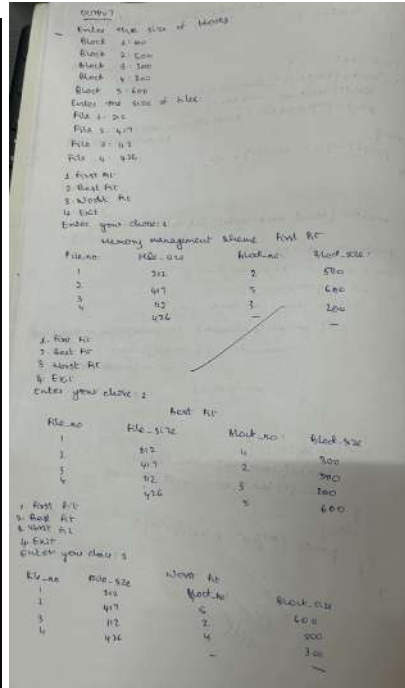 OUTPUT
Enter the size of blocks
Block 1:
Block 2: 500
Block 3: 200
Block 4: 300
Block 5: 600
Enter the size of files:
File 1: 212
File 2: 417
File 3: 112
File 4: 426
1. First Fit
2. Best Fit
3. Worst Fit
4. Exit
Enter your choice: 1
Memory management scheme First Fit
File_no: File_size Block_no: Block_size:
1 212 2 500
2 417 5 600
3 112 3 200
4 426 — —
1. First Fit
2. Best Fit
3. Worst Fit
4. Exit
Enter your choice: 2
Best Fit
File_no File_size Block_no: Block_size
1 212 4 300
2 417 2 500
3 112 3 200
4 426 5 600
1. First Fit
2. Best Fit
3. Worst Fit
4. Exit
Enter you choice: 3
Worst Fit
File_no File_size Block_no Block_size
1 212 5 600
2 417 2 500
3 112 4 300
4 426 — —